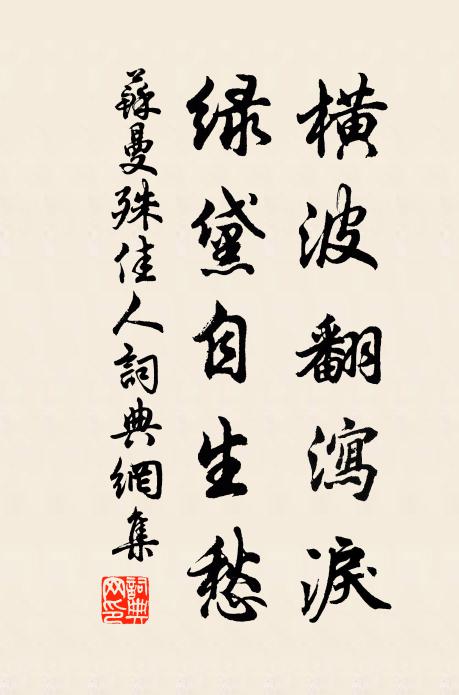 橫波翻瀉淚
绿黛自生愁
蘇曼殊佳人詞典網集
詞典网印